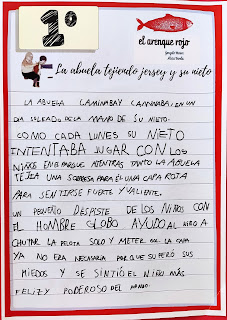 1º
el arenque rojo
La abuela tejiendo jersey y su nieto
LA ABUELA CAMINABA Y CAMINABA, EN UN
DÍA SOLEADO DE LA MANO DE SU NIETO.
COMO CADA LUNES SU NIETO
INTENTABA JUGAR CON LOS
NIÑOS EN EL PARQUE MIENTRAS TANTO LA ABUELA
TEJÍA UNA SORPRESA PARA ÉL UNA CAPA ROJA
PARA SENTIRSE FUERTE Y VALIENTE.
UN PEQUEÑO DESPISTE DE LOS NIÑOS CON
EL HOMBRE GLOBO AYUDÓ AL NIÑO A
CHUTAR LA PELOTA SOLO Y METER GOL LA CAPA
YA NO ERA NECESARIA PORQUE SUPERÓ SUS
MIEDOS Y SE SINTIÓ EL NIÑO MÁS
FELIZ Y PODEROSO DEL MUNDO.